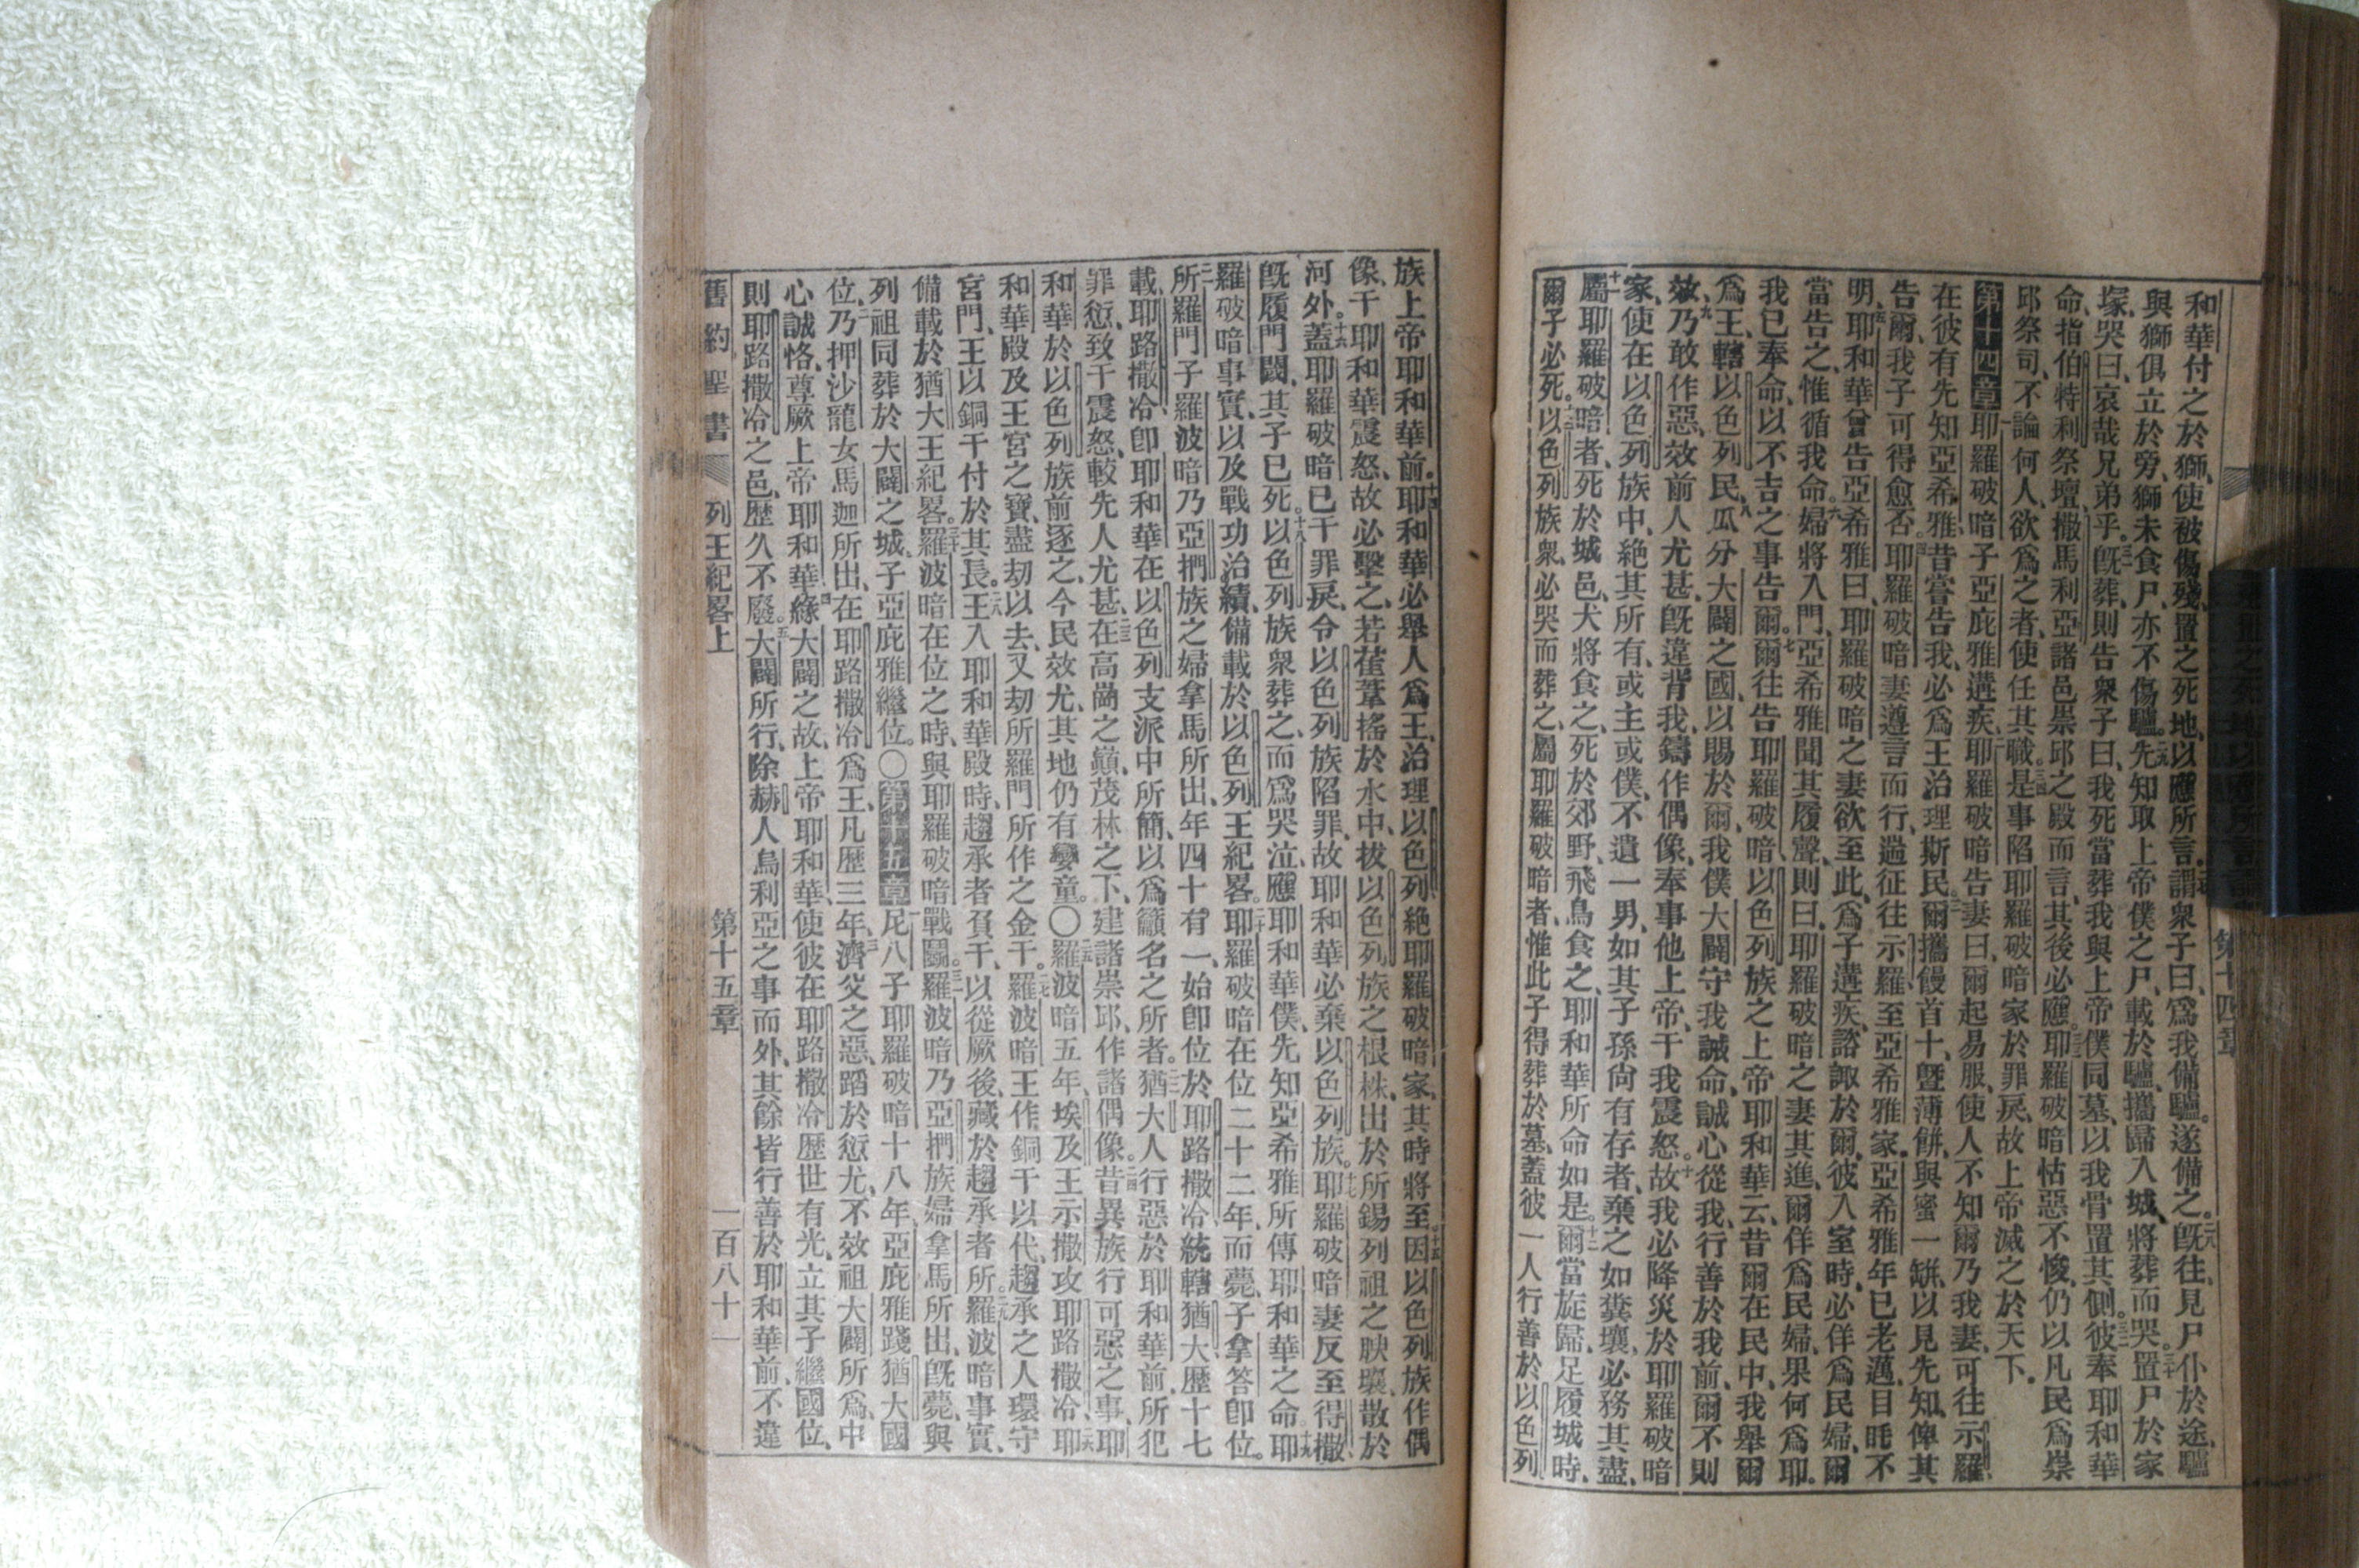 和華付之於獅、使被傷殘、置之死地、以應所言、謂衆子曰、爲我備驢。遂備之。二八既往、見尸仆於途、驢
與獅俱立於旁、獅未食尸、亦不傷驢。二九先知取上帝僕之尸、載於驢、攜歸入城、將葬而哭。三十置尸於家
塚、哭曰、哀哉兄弟乎。三一既葬、則告衆子曰、我死當葬我與上帝僕同墓、以我骨置其側。三二彼奉耶和華
命、指伯特利祭壇、撒馬利亞諸邑崇邱之殿而言、其後必應。三三耶羅破暗怙惡不悛、仍以凡民爲崇
邱祭司、不論何人、欲爲之者、使任其職。三四是事陷耶羅破暗家於罪戾、故上帝滅之於天下。
第十四章 一耶羅破暗子亞庇雅遘疾、二耶羅破暗告妻曰、爾起易服、使人不知爾乃我妻、可往示羅
在彼有先知亞希雅、昔嘗告我、必爲王治理斯民、三爾攜饅首十、曁薄餅、與蜜一缾、以見先知、俾其
告爾、我子可得愈否。四耶羅破暗妻遵言而行、遄征往示羅、至亞希雅家、亞希雅年已老邁、目眊不
明、五耶和華曾告亞希雅曰、耶羅破暗之妻欲至此、爲子遘疾、諮諏於爾、彼入室時、必佯爲民婦、爾
當告之、惟循我命。六婦將入門、亞希雅聞其履聲、則曰、耶羅破暗之妻其進、爾佯爲民婦、果何爲耶。
我已奉命、以不吉之事告爾。七爾往告耶羅破暗、以色列族之上帝耶和華云、昔爾在民中、我舉爾
爲王、轄以色列民、八瓜分大闢之國、以賜於爾、我僕大闢守我誡命、誠心從我、行善於我前、爾不則
效、九乃敢作惡、效前人尤甚、既違背我、鑄作偶像、奉事他上帝、干我震怒。十故我必降災於耶羅破暗
家、使在以色列族中、絶其所有、或主或僕、不遺一男、如其子孫尙有存者、棄之如糞壤、必務其盡、
十一屬耶羅破暗者、死於城邑、犬將食之、死於郊野、飛鳥食之、耶和華所命如是。十二爾當旋歸、足履城時、
爾子必死。十三以色列族衆、必哭而葬之、屬耶羅破暗者、惟此子得葬於墓、蓋彼一人行善於以色列
族上帝耶和華前。十四耶和華必舉人爲王、治理以色列、絕耶羅破暗家、其時將至。十五因以色列族作偶
像、干耶和華震怒、故必擊之、若萑葦搖於水中、拔以色列族之根株、出於所錫列祖之腴壤、散於
河外。十六蓋耶羅破暗已干罪戾、令以色列族陷罪、故耶和華必棄以色列族。十七耶羅破暗妻反至得撒、
既履門閾、其子已死。十八以色列族衆葬之、而爲哭泣、應耶和華僕、先知亞希雅所傳耶和華之命。十九耶
羅破暗事實、以及戰功治績、備載於以色列王紀畧。二十耶羅破暗在位二十二年、而薨、子拿答卽位。
二一所羅門子羅波暗、乃亞捫族之婦拿馬所出、年四十有一、始卽位於耶路撒冷、統轄猶大、歷十七
載、耶路撒冷、卽耶和華在以色列支派中所簡、以爲籲名之所者。二二猶大人行惡於耶和華前、所犯
罪愆、致干震怒、較先人尤甚、二三在高崗之巔、茂林之下、建諸崇邱、作諸偶像。二四昔異族行可惡之事、耶
和華於以色列族前逐之、今民效尤、其地仍有孌童。〇二五羅波暗五年、埃及王示撒攻耶路撒冷、二六耶
和華殿及王宮之寶、盡劫以去、又劫所羅門所作之金干。二七羅波暗王作銅干以代、趨承之人環守
宮門、王以銅干付於其長。二八王入耶和華殿時、趨承者負干、以從厥後、藏於趨承者所。二九羅波暗事實、
備載於猶大王紀畧。三十羅波暗在位之時、與耶羅破暗戰鬭。三一羅波暗乃亞捫族婦拿馬所出、既薨、與
列祖同葬於大闢之城、子亞庇雅繼位。〇第十五章 一尼八子耶羅破暗十八年、亞庇雅踐猶大國
位、二乃押沙龍女馬迦所出、在耶路撒冷爲王、凡歷三年、三濟父之惡、蹈於愆尤、不效祖大闢所爲、中
心誠恪、尊厥上帝耶和華、四緣大闢之故、上帝耶和華使彼在耶路撒冷歷世有光、立其子繼國位、
則耶路撒冷之邑、歷久不廢。五大闢所行、除赫人烏利亞之事而外、其餘皆行善於耶和華前、不違
舊約聖書 列王紀畧上 第十五章 一百八十一
第十四章